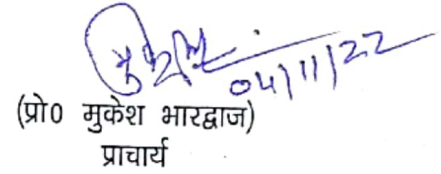 04/11/22
(प्रो0 मुकेश भारद्वाज)
प्राचार्य